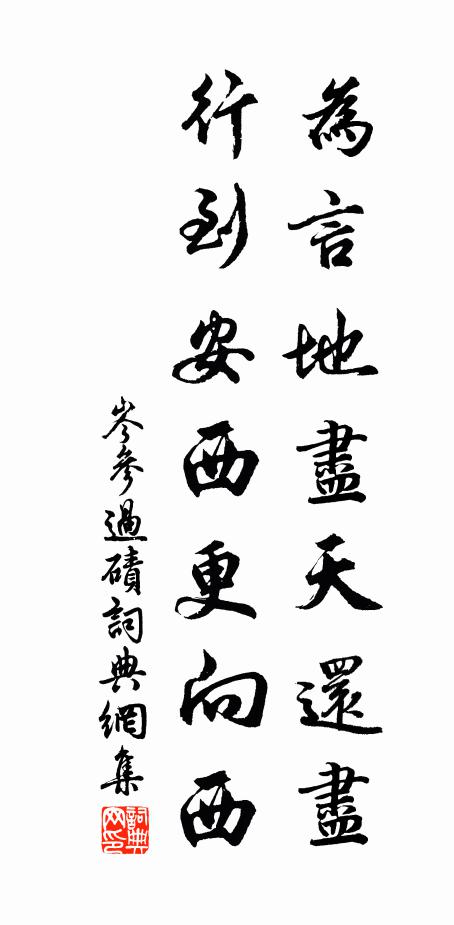 為言地盡天還盡
行到安西更向西
岑參過磧詞典網集
詞典网印